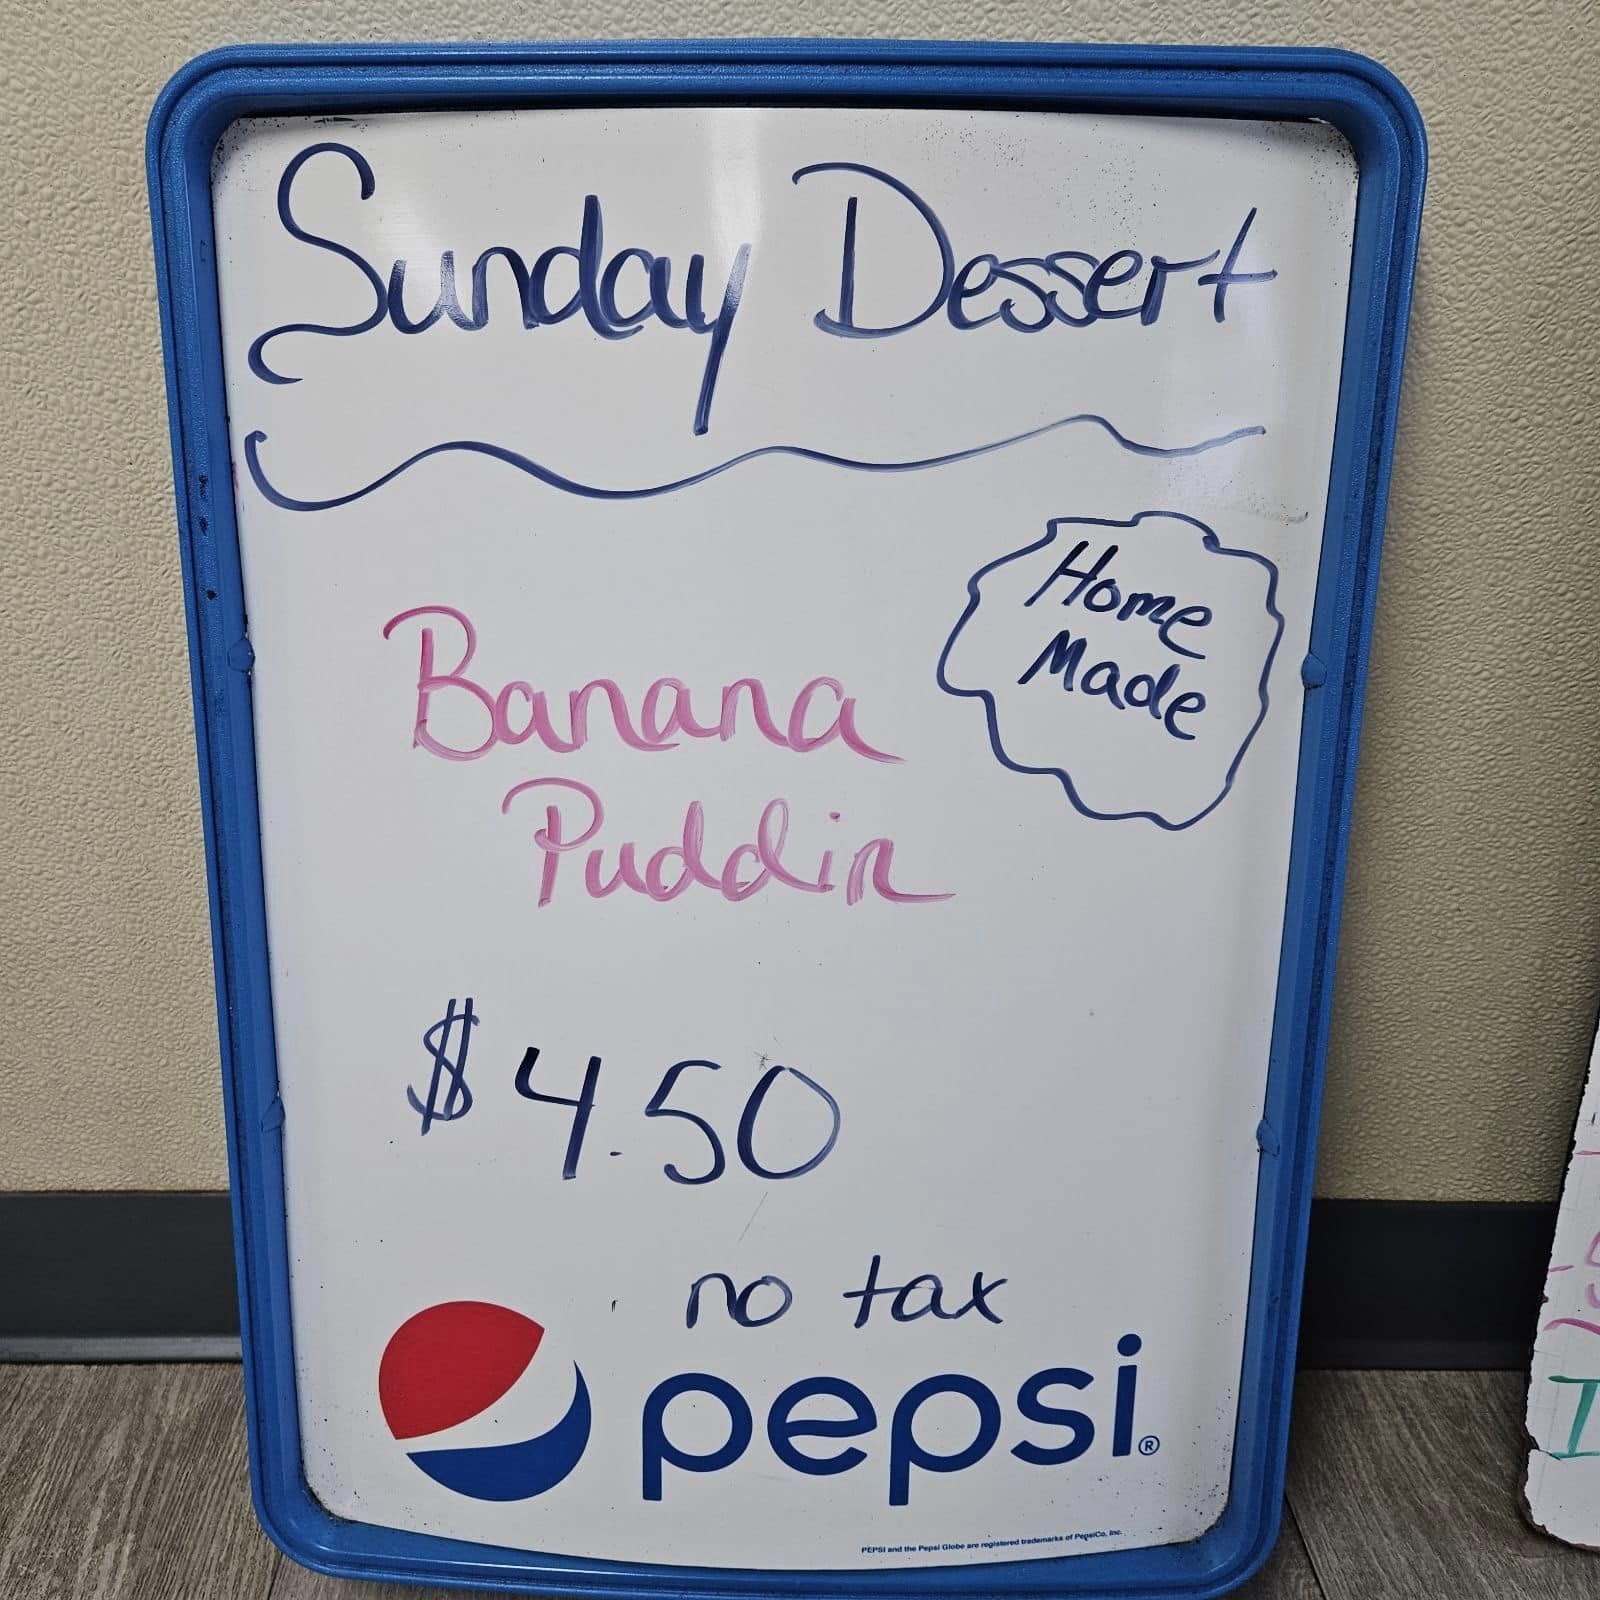 Sunday Dessert
Home
Made
Banana
Puddin
$4.50
no tax
pepsi®
PEPSI and the Pepsi Globe are registered trademarks of PepsiCo, Inc.